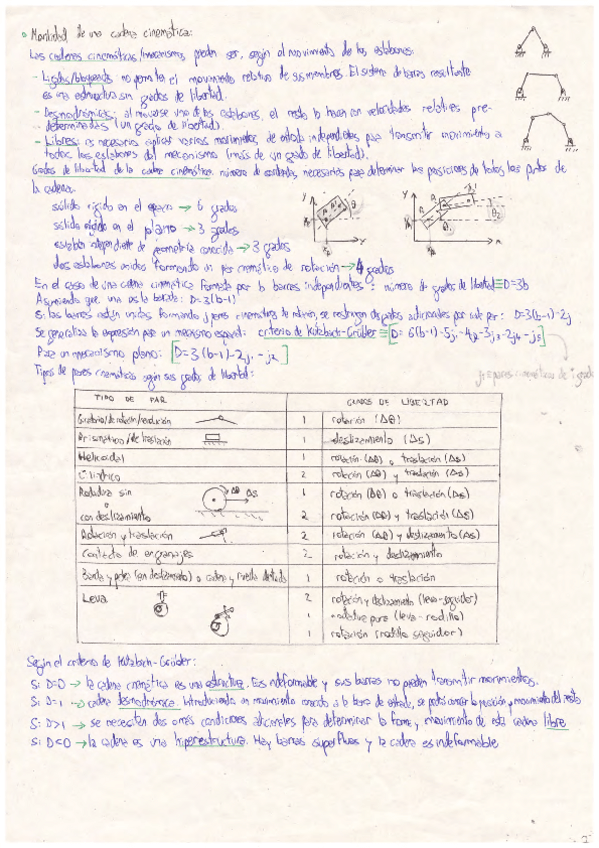 Movilidad de una cadena cinemática:
Las cadenas cinemáticas/mecanismos pueden ser, según el movimiento de los eslabones:
- Ligadas/bloqueadas no permiten el movimiento relativo de sus miembros. El sistema de barras resultante
es una estructura sin grados de libertad.
- Desmodrómicas: al moverse uno de los eslabones, el resto lo hacen con velocidades relativas pre-
determinadas (un grado de libertad)
- Libres: es necesario aplicar varios movimientos de entrada independientes para transmitir movimiento a
todos los eslabones del mecanismo (más de un grado de libertad).
Grados de libertad de la cadena cinemática: número de coordenadas necesarias para determinar las posiciones de todos los puntos de
la cadena.
sólido rígido en el espacio → 6 grados
sólido rígido en el plano → 3 grados
eslabón independiente de geometría conocida → 3 grados
dos eslabones unidos formando un par cinemático de rotación → 4 grados
En el caso de una cadena cinemática formada por b barras independientes: número de grados de libertad ≡ D=3b
Asumiendo que una es la bancada: D=3(b-1)
Si las barras están unidas formando j pares cinemáticos de rotación, se restringen dos grados adicionales por cada par: D=3(b-1)-2j
Se generaliza la expresión para un mecanismo espacial: criterio de Kutzbach-Grübler ≡ [D= 6(b-1)-5j₁-4j₂-3j₃-2j₄-j₅]
Para un mecanismo plano: [D=3(b-1)-2j₁-j₂]
jᵢ ≡ pares cinemáticos de i grados
Tipos de pares cinemáticos según sus grados de libertad:
TIPO DE PAR GRADOS DE LIBERTAD
Giratorio/de rotación/revolución 1 rotación (Δθ)
Prismático/de traslación 1 deslizamiento (Δs)
Helicoidal 1 rotación (Δθ) o traslación (Δs)
Cilíndrico 2 rotación (Δθ) y traslación (Δs)
Rodadura sin Δθ Δs 1 rotación (Δθ) o traslación (Δs)
o
con deslizamiento 2 rotación (Δθ) y traslación (Δs)
Rotación y traslación 2 rotación (Δθ) y deslizamiento (Δs)
Contacto de engranajes 2 rotación y deslizamiento
Banda y polea (sin deslizamiento) o cadena y rueda dentada 1 rotación o traslación
Leva 2 rotación y deslizamiento (leva-seguidor)
1 rodadura pura (leva-rodillo)
1 rotación (rodillo seguidor)
Según el criterio de Kutzbach-Grübler:
Si D=0 → la cadena cinemática es una estructura. Es indeformable y sus barras no pueden transmitir movimientos.
Si D=1 → cadena desmodrómica. Introduciendo un movimiento conocido a la barra de entrada, se podrá conocer la posición y movimiento del resto
Si D>1 → se necesitan dos o más condiciones adicionales para determinar la forma y movimiento de esta cadena libre
Si D<0 → la cadena es una hiperestructura. Hay barras superfluas y la cadena es indeformable